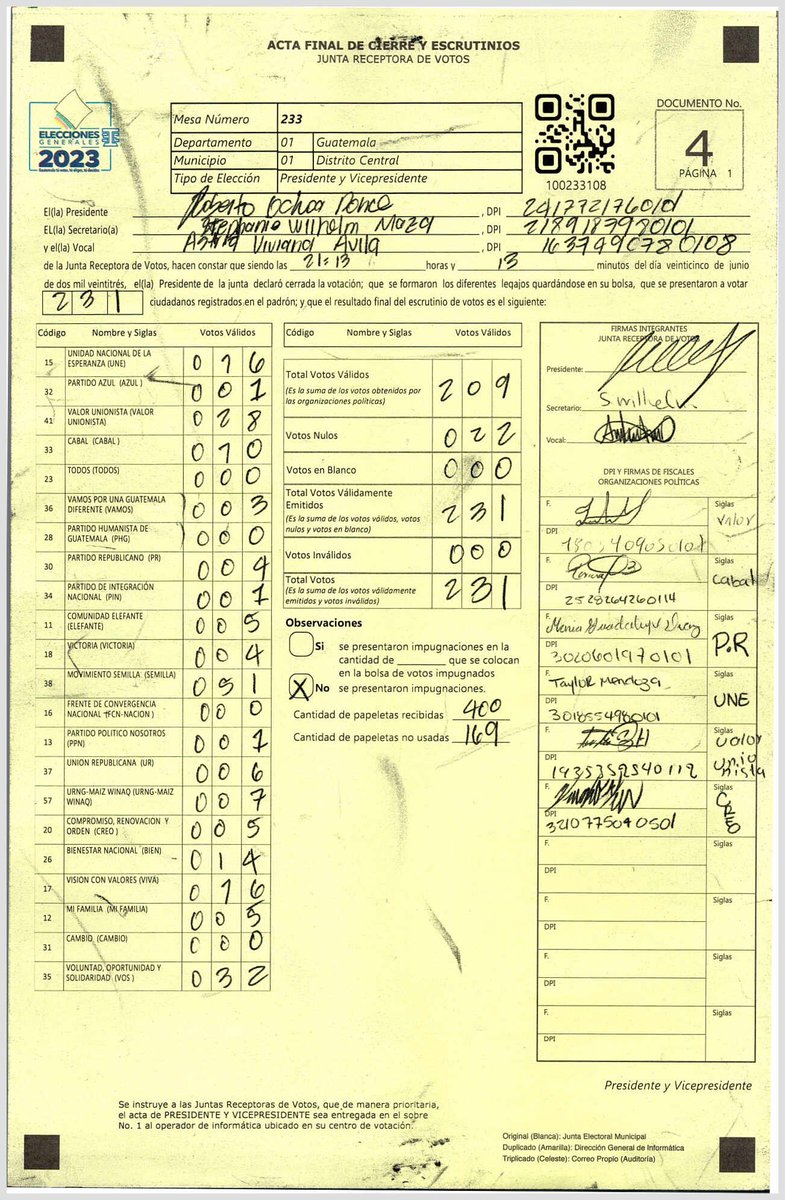 ACTA FINAL DE CIERRE Y ESCRUTINIOS
JUNTA RECEPTORA DE VOTOS
ELECCIONES
GENERALES
2023
Mesa Número 233
Departamento 01 Guatemala
Municipio 01 Distrito Central
Tipo de Elección Presidente y Vicepresidente
100233108
DOCUMENTO No.
4
PÁGINA 1
El(la) Presidente Roberto Ochoa Ponce , DPI
EL(la) Secretario(a) Stephanie Wilhelm Maza , DPI 2189187920101
y el(la) Vocal Viviana Avila , DPI 1637490780108
de la Junta Receptora de Votos, hacen constar que siendo las 21:13 horas y 13 minutos del día veinticinco de junio
de dos mil veintitrés, el(la) Presidente de la junta declaró cerrada la votación; que se formaron los diferentes legajos guardándose en su bolsa, que se presentaron a votar
231 ciudadanos registrados en el padrón; y que el resultado final del escrutinio de votos es el siguiente:
Código Nombre y Siglas Votos Válidos
15 UNIDAD NACIONAL DE LA ESPERANZA (UNE) 016
32 PARTIDO AZUL (AZUL ) 001
41 VALOR UNIONISTA (VALOR UNIONISTA) 028
33 CABAL (CABAL ) 010
23 TODOS (TODOS) 000
36 VAMOS POR UNA GUATEMALA DIFERENTE (VAMOS) 003
28 PARTIDO HUMANISTA DE GUATEMALA (PHG) 000
30 PARTIDO REPUBLICANO (PR) 004
34 PARTIDO DE INTEGRACIÓN NACIONAL (PIN) 001
11 COMUNIDAD ELEFANTE (ELEFANTE) 005
18 VICTORIA (VICTORIA) 004
38 MOVIMIENTO SEMILLA (SEMILLA) 051
16 FRENTE DE CONVERGENCIA NACIONAL (FCN-NACION ) 000
13 PARTIDO POLITICO NOSOTROS (PPN) 001
37 UNION REPUBLICANA (UR) 006
57 URNG-MAIZ WINAQ (URNG-MAIZ WINAQ) 007
20 COMPROMISO, RENOVACION Y ORDEN (CREO ) 005
26 BIENESTAR NACIONAL (BIEN) 014
17 VISION CON VALORES (VIVA) 016
12 MI FAMILIA (MI FAMILIA) 005
31 CAMBIO (CAMBIO) 000
35 VOLUNTAD, OPORTUNIDAD Y SOLIDARIDAD (VOS ) 032
Código Nombre y Siglas Votos Válidos
Total Votos Válidos 209
(Es la suma de los votos obtenidos por
las organizaciones políticas)
Votos Nulos 022
Votos en Blanco 000
Total Votos Válidamente
Emitidos 231
(Es la suma de los votos válidos, votos
nulos y votos en blanco)
Votos Inválidos 000
Total Votos 231
(Es la suma de los votos válidamente
emitidos y votos inválidos)
Observaciones
Si se presentaron impugnaciones en la
cantidad de ________ que se colocan
en la bolsa de votos impugnados
X No se presentaron impugnaciones.
Cantidad de papeletas recibidas 400
Cantidad de papeletas no usadas 169
FIRMAS INTEGRANTES
JUNTA RECEPTORA DE VOTOS
Presidente:
Secretario: Swilhelm.
Vocal:
DPI Y FIRMAS DE FISCALES
ORGANIZACIONES POLÍTICAS
F. Siglas
Valor
DPI
F. Siglas
Cabal
DPI 2528264260114
F. Maria Guadalupe Siglas
P.R
DPI 3020601970101
F. Taylor Mendoza Siglas
UNE
DPI 3018554980101
F. Siglas
Valor
Unionista
DPI 1935352540112
F. Siglas
CREO
DPI 3210775040501
F. Siglas
DPI
F. Siglas
DPI
F. Siglas
DPI
F. Siglas
DPI
Presidente y Vicepresidente
Se instruye a las Juntas Receptoras de Votos, que de manera prioritaria,
el acta de PRESIDENTE Y VICEPRESIDENTE sea entregada en el sobre
No. 1 al operador de informática ubicado en su centro de votación.
Original (Blanca): Junta Electoral Municipal
Duplicado (Amarilla): Dirección General de Informática
Triplicado (Celeste): Correo Propio (Auditoría)